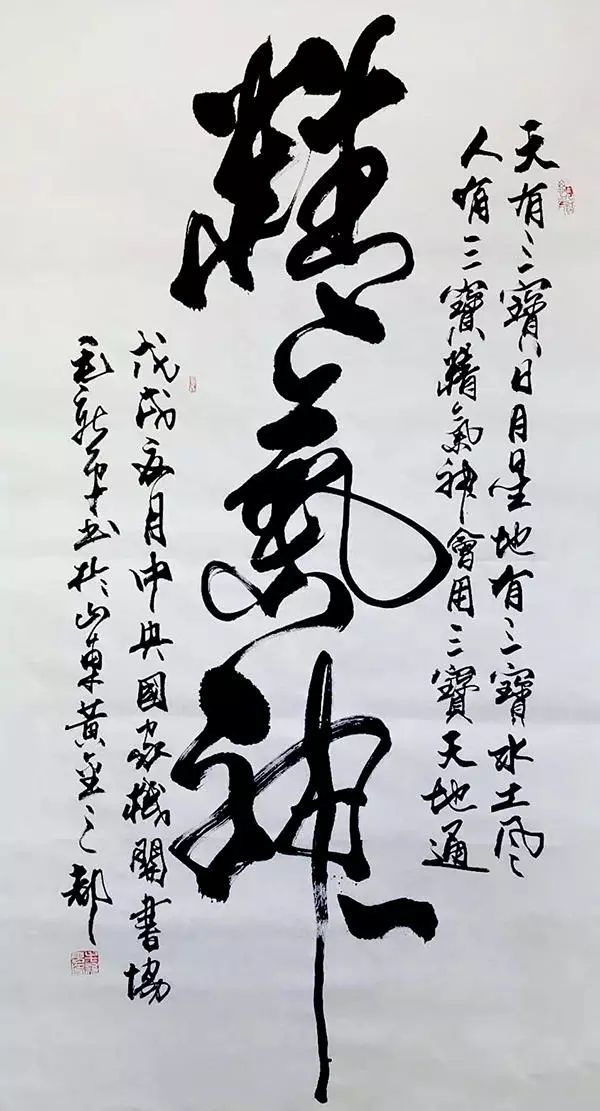 天有三寶日月星地有三寶水土風
人有三寶精氣神會用三寶天地通
精氣神
戊戌夏月中央國家機關書協
毛書於山東黃金之都